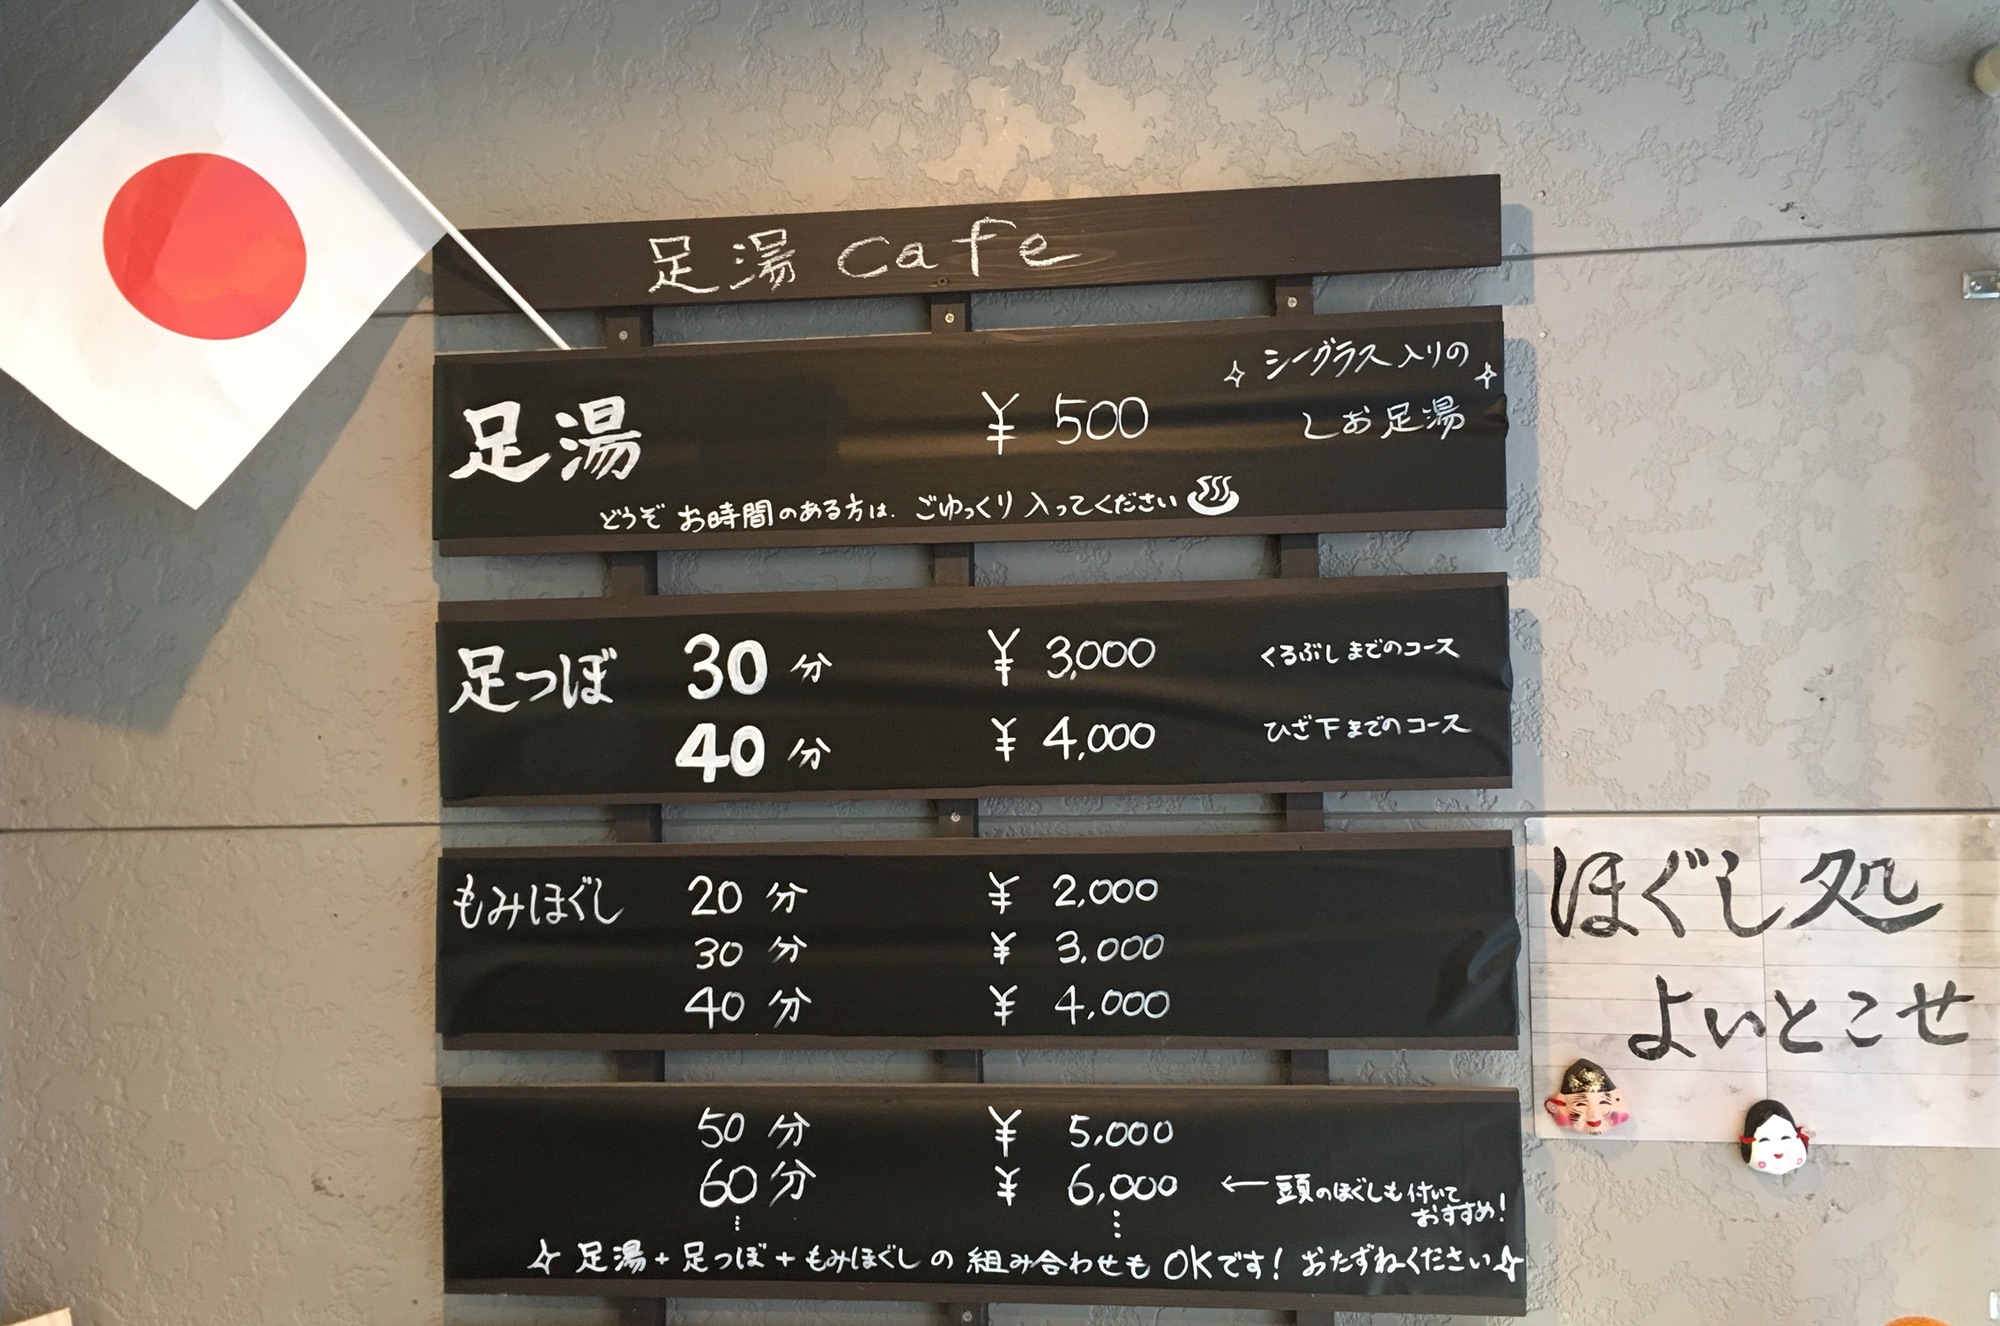 足湯 cafe
足湯 ¥ 500 シーグラス入りの
しお足湯
どうぞ お時間のある方は、ごゆっくり 入ってください♨
足つぼ 30分 ¥ 3,000 くるぶしまでのコース
40分 ¥ 4,000 ひざ下までのコース
もみほぐし 20分 ¥ 2,000
30分 ¥ 3,000
40分 ¥ 4,000
50分 ¥ 5,000
60分 ¥ 6,000 ←頭のほぐしも付いて
おすすめ!
足湯+足つぼ+もみほぐしの組み合わせもOKです! おたずねください
ほぐし処
よいとこせ